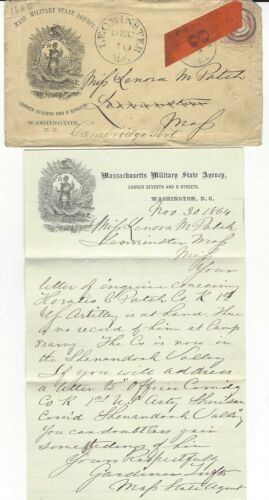 1864
MASS. MILITARY STATE AGENCY
CORNER SEVENTH AND D STREETS,
WASHINGTON,
D. C.
LEOMINSTER
DEC
10
Ms.
3
Miss Lenora M Patch
Leominster
Mass
Cambridge Port
Massachusetts Military State Agency,
CORNER SEVENTH AND D STREETS,
WASHINGTON, D. C.
Nov 30 1864
Miss Lenora M Patch
Leominster Mass
Miss
Your
letter of inquiry concerning
Horatio C Patch Co K 1st
US Artillery is at hand. There
is no record of him at Camp
Barry. The Co is now in
the Shenandoah Valley
If you will address
a letter to "Officer Comd'g
Co K 1st US Art'y, Sheridan
Com'd Shenandoah Valley"
You can doubtless gain
some tidings of him
Yours Respectfully
Gardiner Tufts
Mass State Agent